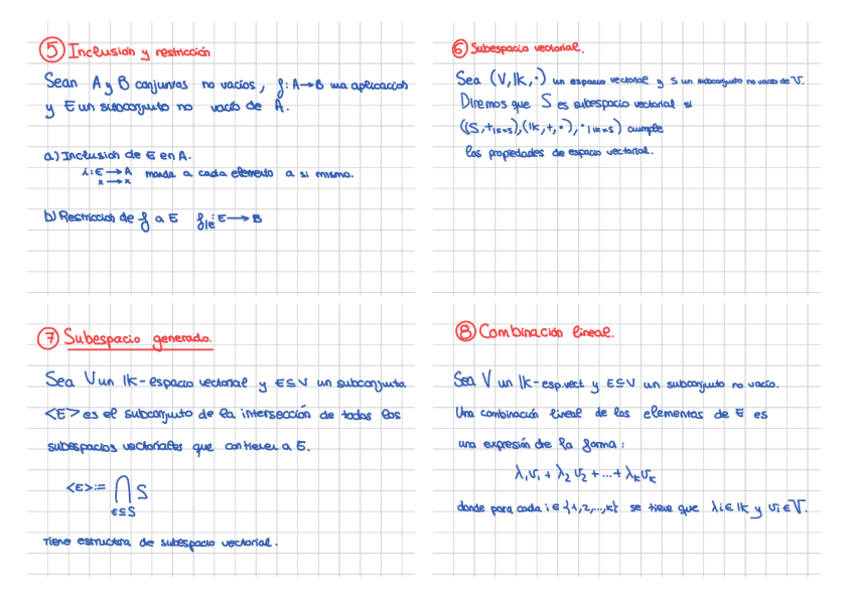 5 Inclusion y restricción
Sean A y B conjuntos no vacíos, f: A→B una aplicación
y E un subconjunto no vacío de A.
a) Inclusion de E en A.
i: E → A manda a cada elemento a si mismo.
x → x
b) Restriccion de f a E f|E: E → B
6 Subespacio vectorial.
Sea (V, K, ·) un espacio vectorial y S un subconjunto no vacío de V.
Diremos que S es subespacio vectorial si
((S, +|S×S), (K, +, ·), ·|K×S) cumple
las propiedades de espacio vectorial.
7 Subespacio generado.
Sea V un K-espacio vectorial y E⊆V un subconjunto.
<E> es el subconjunto de la intersección de todos los
subespacios vectoriales que contienen a E.
<E>:= ⋂ S
E⊆S
Tiene estructura de subespacio vectorial.
8 Combinación lineal.
Sea V un K-esp.vect y E⊆V un subconjunto no vacío.
Una combinación lineal de los elementos de E es
una expresión de la forma:
λ₁v₁ + λ₂v₂ + ... + λₖvₖ
donde para cada i ∈ {1,2,...,k} se tiene que λi ∈ K y vi ∈ V.